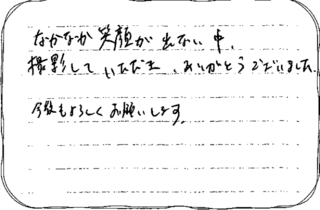 なかなか笑顔が出ない中、
撮影していただき、ありがとうございました。
今後もよろしくお願いします。